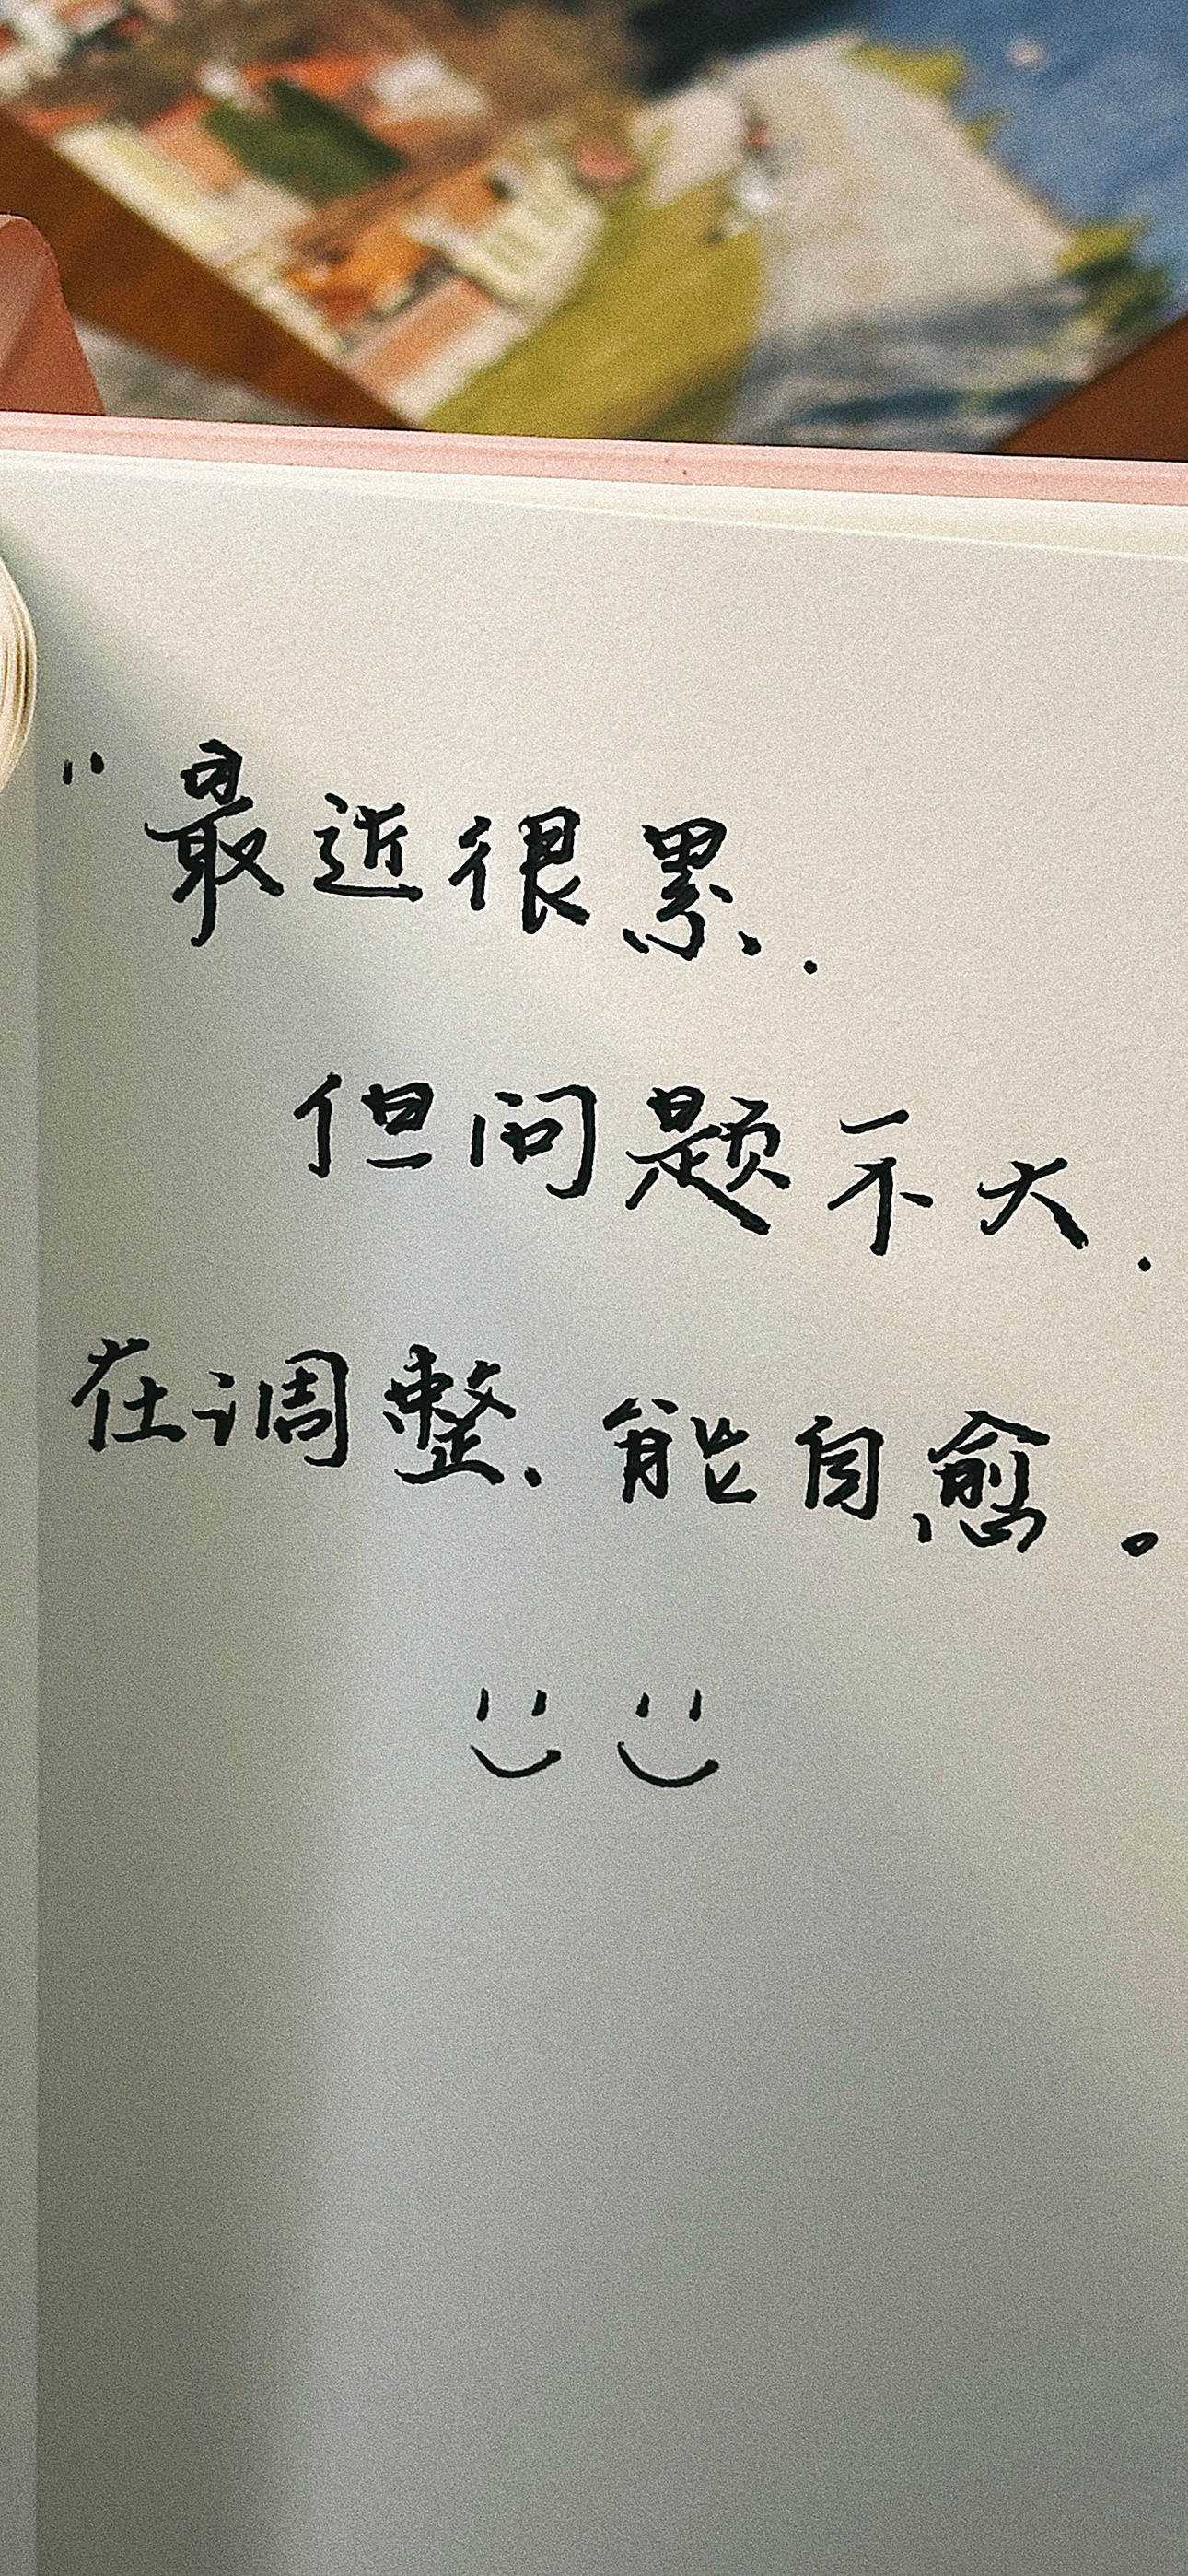 "最近很累.
但问题不大.
在调整.能自愈。